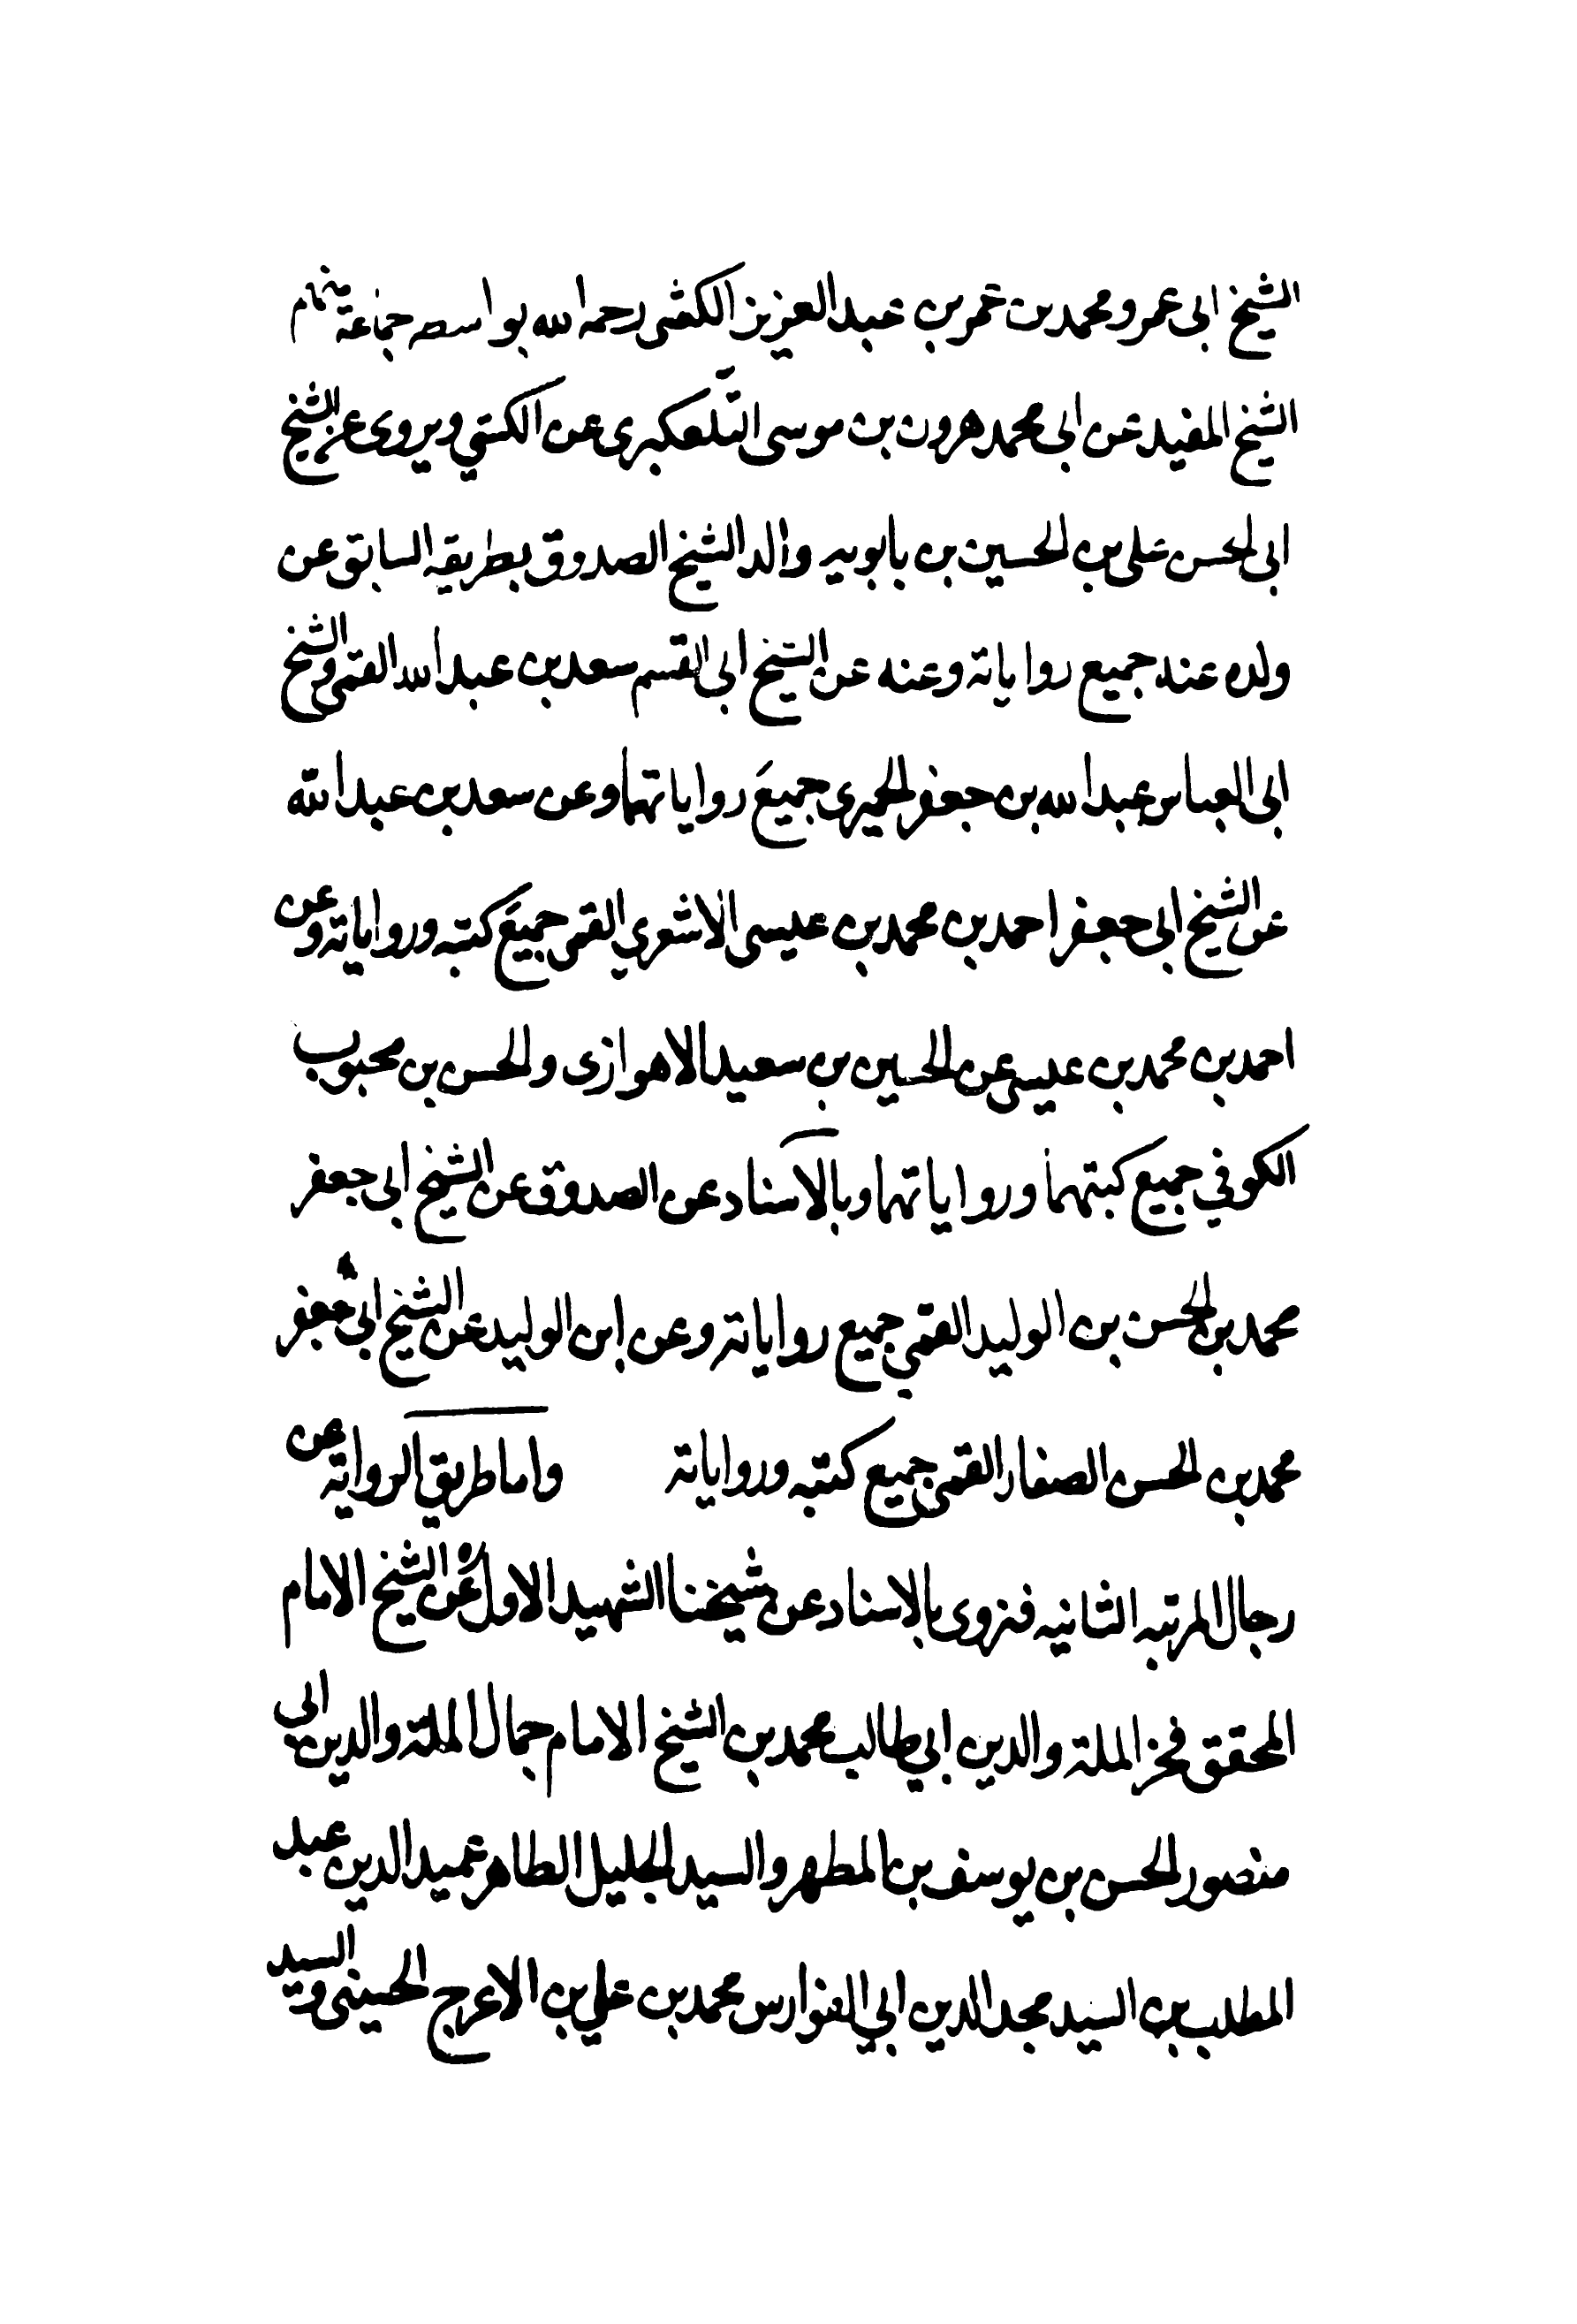 الشيخ ابى عمرو محمد بن عمر بن عبد العزيز الكشى رحمه الله بواسطه جماعة منهم
الشيخ المفيد عن ابى محمد هرون بن موسى التلعكبرى عن الكشي ويروى عن الشيخ
ابى الحسن على بن الحسين بن بابويه والد الشيخ الصدوق بطريقه السابق عن
ولده عنه جميع رواياته وعنه عن الشيخ ابى القسم سعد بن عبد الله القمى والشيخ
ابى العباس عبد الله بن جعفر الحميرى جميع رواياتهما وعن سعد بن عبد الله
عن الشيخ ابى جعفر احمد بن محمد بن عيسى الاشعري القمى جميع كتبه ورواياته وعن
احمد بن محمد بن عيسى عن الحسين بن سعيد الاهوازى والحسن بن محبوب
الكوفي جميع كتبهما ورواياتهما وبالاسناد عن الصدوق عن الشيخ ابى جعفر
محمد بن الحسن بن الوليد القمي جميع رواياته وعن ابن الوليد عن الشيخ ابى جعفر
محمد بن الحسن الصفار القمى جميع كتبه ورواياته واما طريق الرواية عن
رجال المرتبه الثانيه فنروى بالاسناد عن شيخنا الشهيد الاول عن الشيخ الامام
المحقق فخر الملة والدين ابي طالب محمد بن الشيخ الامام جمال الملة والدين ابي
منصور الحسن بن يوسف بن المطهر والسيد الجليل الطاهر عميد الدين عبد
المطلب بن السيد مجد الدين ابي الفوارس محمد بن علي بن الاعرج الحسينى والسيد